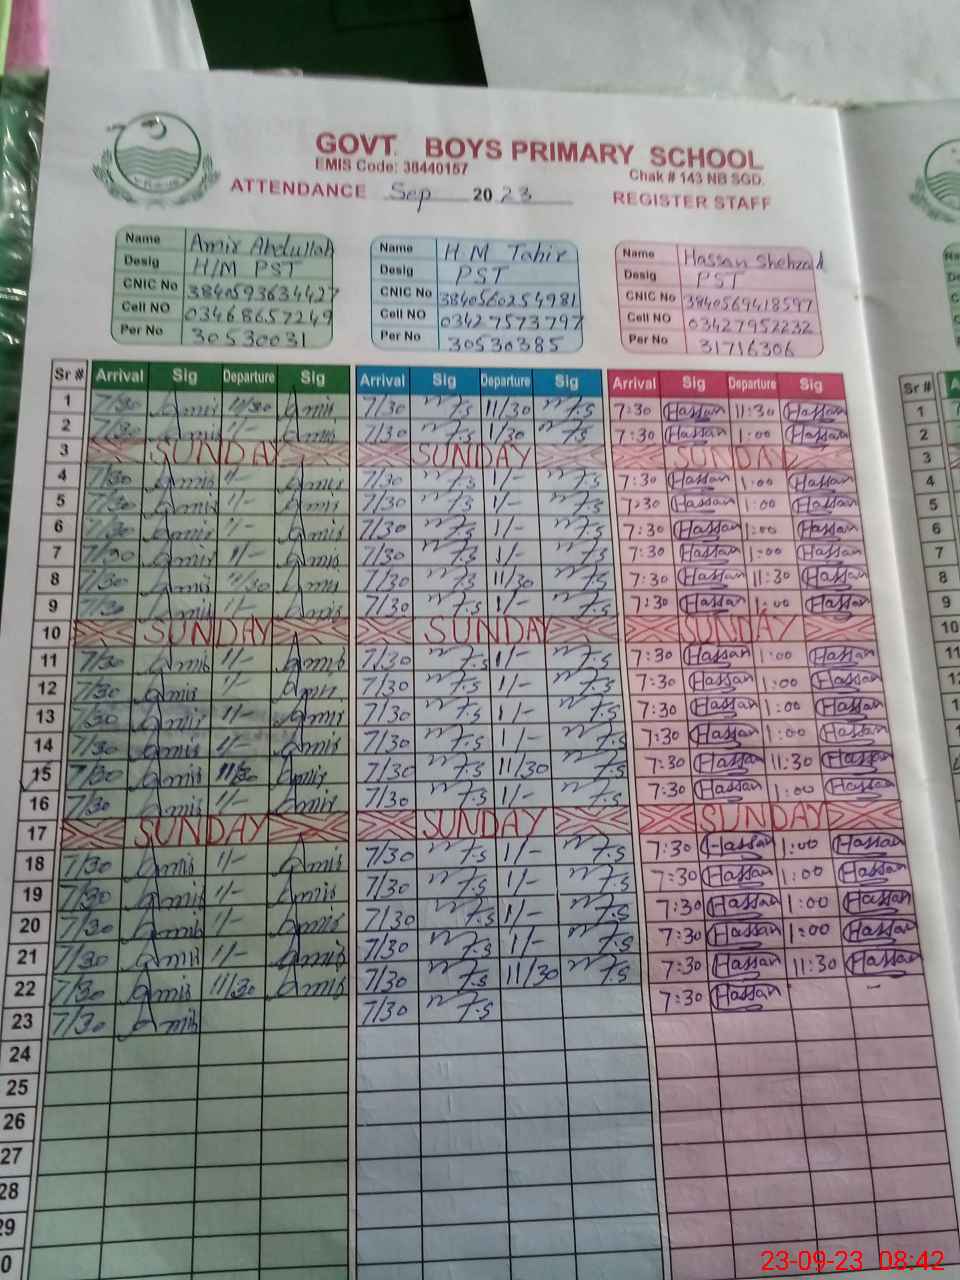 GOVT. BOYS PRIMARY SCHOOL
EMIS Code: 38440157 Chak # 143 NB SGD.
ATTENDANCE Sep 2023 REGISTER STAFF
Name Amir Abdullah Name H M Tahir Name Hassan Shehzad
Desig H/M PST Desig PST Desig PST
CNIC No 3840593634427 CNIC No 3840560254981 CNIC No 3840569418597
Cell NO 03468657249 Cell NO 03427573797 Cell NO 03427952232
Per No 30530031 Per No 30530385 Per No 31716306
Sr # Arrival Sig Departure Sig Arrival Sig Departure Sig Arrival Sig Departure Sig Sr #
1 7/30 Amir 11/30 Amir 7/30 11/30 7:30 Hassan 11:30 Hassan 1
2 7/30 Amir 1/- Amir 7/30 1/30 7:30 Hassan 1:00 Hassan 2
3 SUNDAY SUNDAY SUNDAY 3
4 7/30 Amir 1/- Amir 7/30 1/- 7:30 Hassan 1:00 Hassan 4
5 7/30 Amir 1/- Amir 7/30 1/- 7:30 Hassan 1:00 Hassan 5
6 7/30 Amir 1/- Amir 7/30 1/- 7:30 Hassan 1:00 Hassan 6
7 7/30 Amir 1/- Amir 7/30 1/- 7:30 Hassan 1:00 Hassan 7
8 7/30 Amir 11/30 Amir 7/30 11/30 7:30 Hassan 11:30 Hassan 8
9 7/30 Amir 1/- Amir 7/30 1/- 7:30 Hassan 1:00 Hassan 9
10 SUNDAY SUNDAY SUNDAY 10
11 7/30 Amir 1/- Amir 7/30 1/- 7:30 Hassan 1:00 Hassan 11
12 7/30 Amir 1/- Amir 7/30 1/- 7:30 Hassan 1:00 Hassan
13 7/30 Amir 1/- Amir 7/30 1/- 7:30 Hassan 1:00 Hassan
14 7/30 Amir 1/- Amir 7/30 1/- 7:30 Hassan 1:00 Hassan
15 7/30 Amir 11/30 Amir 7/30 11/30 7:30 Hassan 11:30 Hassan
16 7/30 Amir 1/- Amir 7/30 1/- 7:30 Hassan 1:00 Hassan
17 SUNDAY SUNDAY SUNDAY
18 7/30 Amir 1/- Amir 7/30 1/- 7:30 Hassan 1:00 Hassan
19 7/30 Amir 1/- Amir 7/30 1/- 7:30 Hassan 1:00 Hassan
20 7/30 Amir 1/- Amir 7/30 1/- 7:30 Hassan 1:00 Hassan
21 7/30 Amir 1/- Amir 7/30 1/- 7:30 Hassan 1:00 Hassan
22 7/30 Amir 11/30 Amir 7/30 11/30 7:30 Hassan 11:30 Hassan
23 7/30 Amir 7/30 7:30 Hassan -
24
25
26
27
28
29
23-09-23 08:42